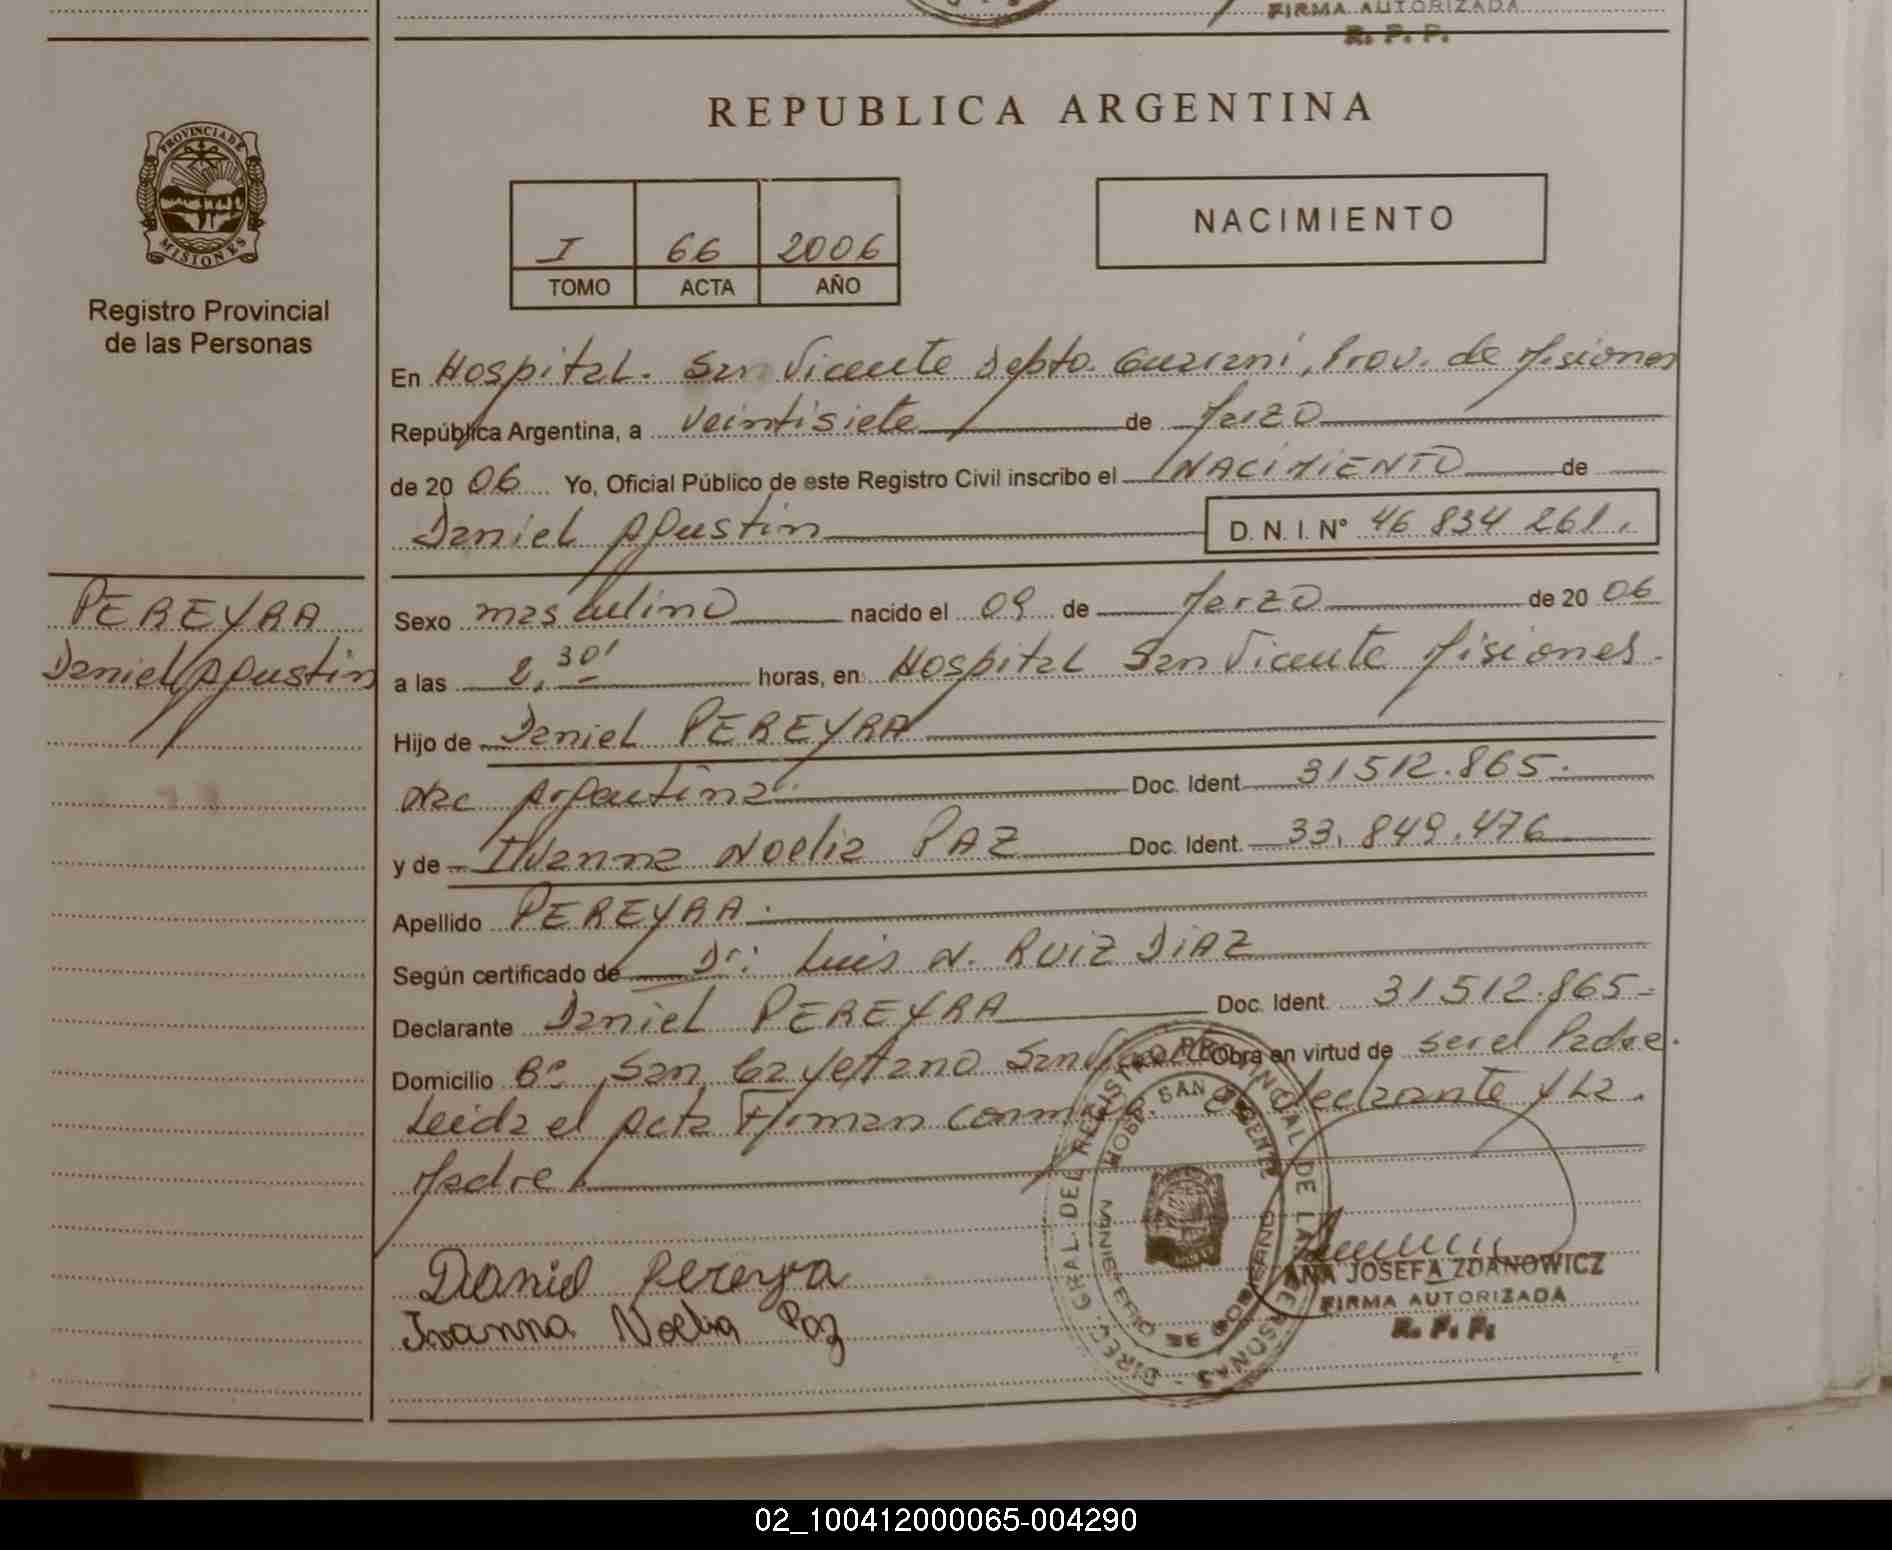 FIRMA AUTORIZADA
R. P. P.
REPUBLICA ARGENTINA
PROVINCIA DE
MISIONES
Registro Provincial
de las Personas
I 66 2006
TOMO ACTA AÑO
NACIMIENTO
En Hospital. San Vicente Depto. Guarani, Prov. de Misiones
República Argentina, a veintisiete de Marzo
de 2006 Yo, Oficial Público de este Registro Civil inscribo el NACIMIENTO de
Daniel Agustin D. N. I. N° 46 834 261.
PEREYRA
Daniel Agustin
Sexo masculino nacido el 09 de Marzo de 2006
a las 2,30' horas, en Hospital San Vicente Misiones.
Hijo de Daniel PEREYRA
nac Argentina. Doc. Ident. 31512.865.
y de Ivanna Noelia PAZ Doc. Ident. 33.849.476
Apellido PEREYRA.
Según certificado de Dr: Luis N. RUIZ DIAZ
Declarante Daniel PEREYRA Doc. Ident. 31512.865-
Domicilio B° San Cayetano San Vicente Obra en virtud de ser el Padre.
Leida el Acta Firman conmigo. El declarante y La.
Madre
DIREC. GRAL. DEL REGISTRO PROVINCIAL DE LAS PERSONAS
HOSP. SAN VICENTE
DE GOBIERNO
Daniel Pereyra
Ivanna Noelia Paz
ANA JOSEFA ZDANOWICZ
FIRMA AUTORIZADA
R. P. P.
02_100412000065-004290